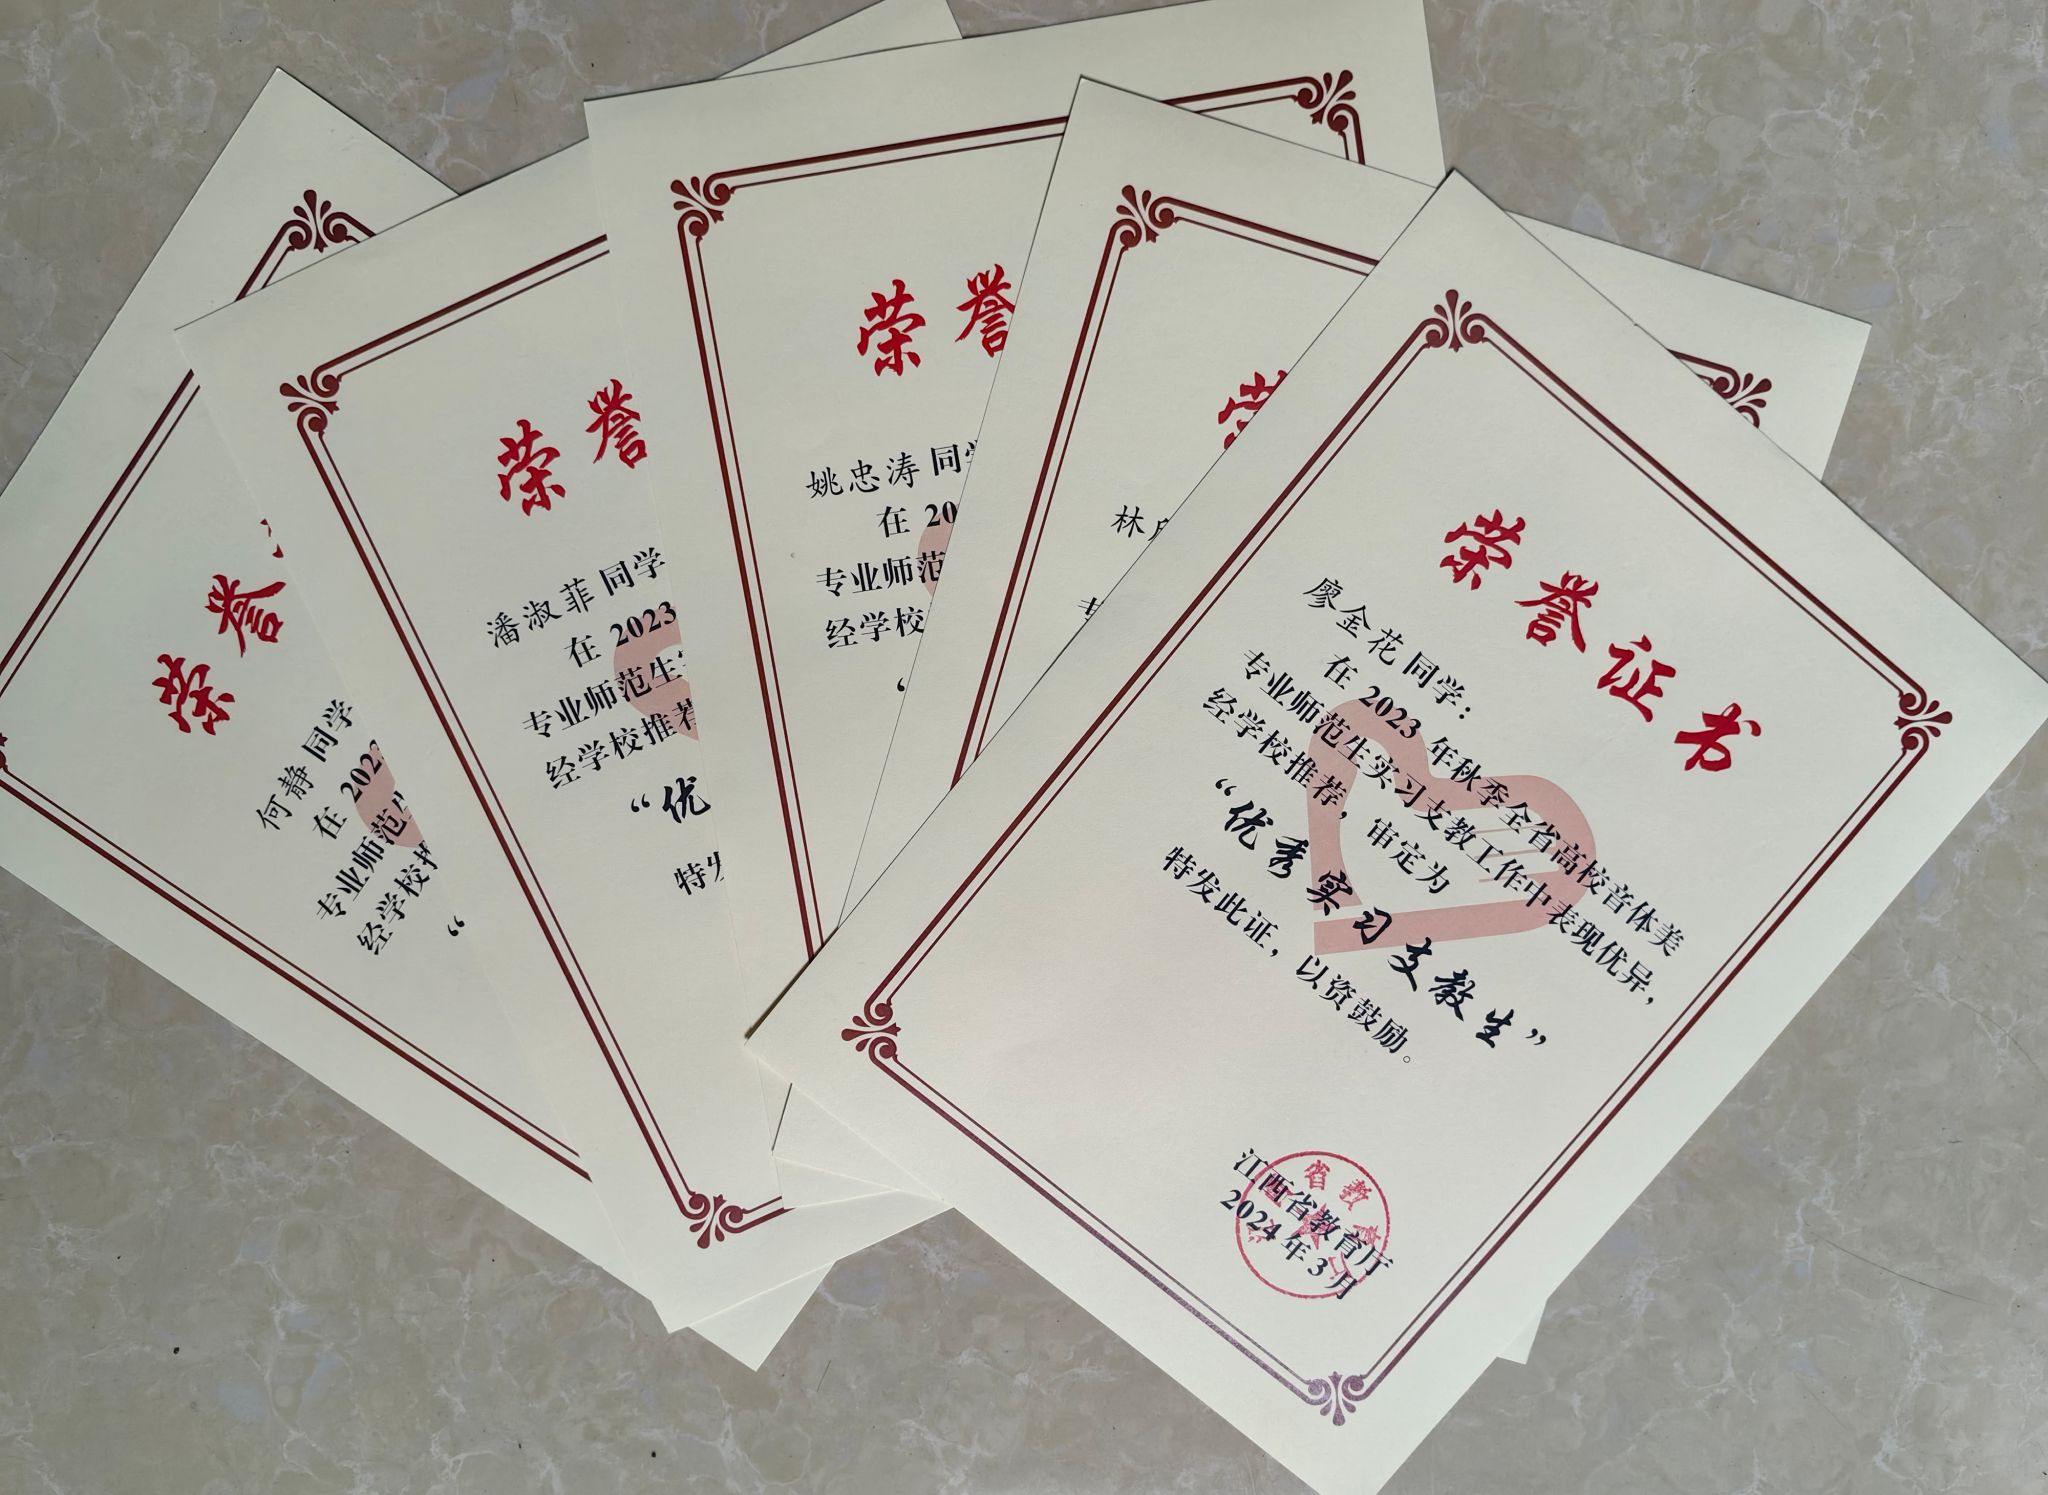 荣誉
何静 同学
在 202
专业师范生
经学校
“
荣誉
潘淑菲 同学
在 2023
专业师范生实
经学校推荐
“优
特发
荣誉
姚忠涛 同学
在 20
专业师范
经学校
荣
林
专
荣誉证书
廖金花 同学：
在 2023 年秋季全省高校音体美
专业师范生实习支教工作中表现优异，
经学校推荐，审定为
“优秀实习支教生”
特发此证，以资鼓励。
江西省教育厅
2024 年 3 月